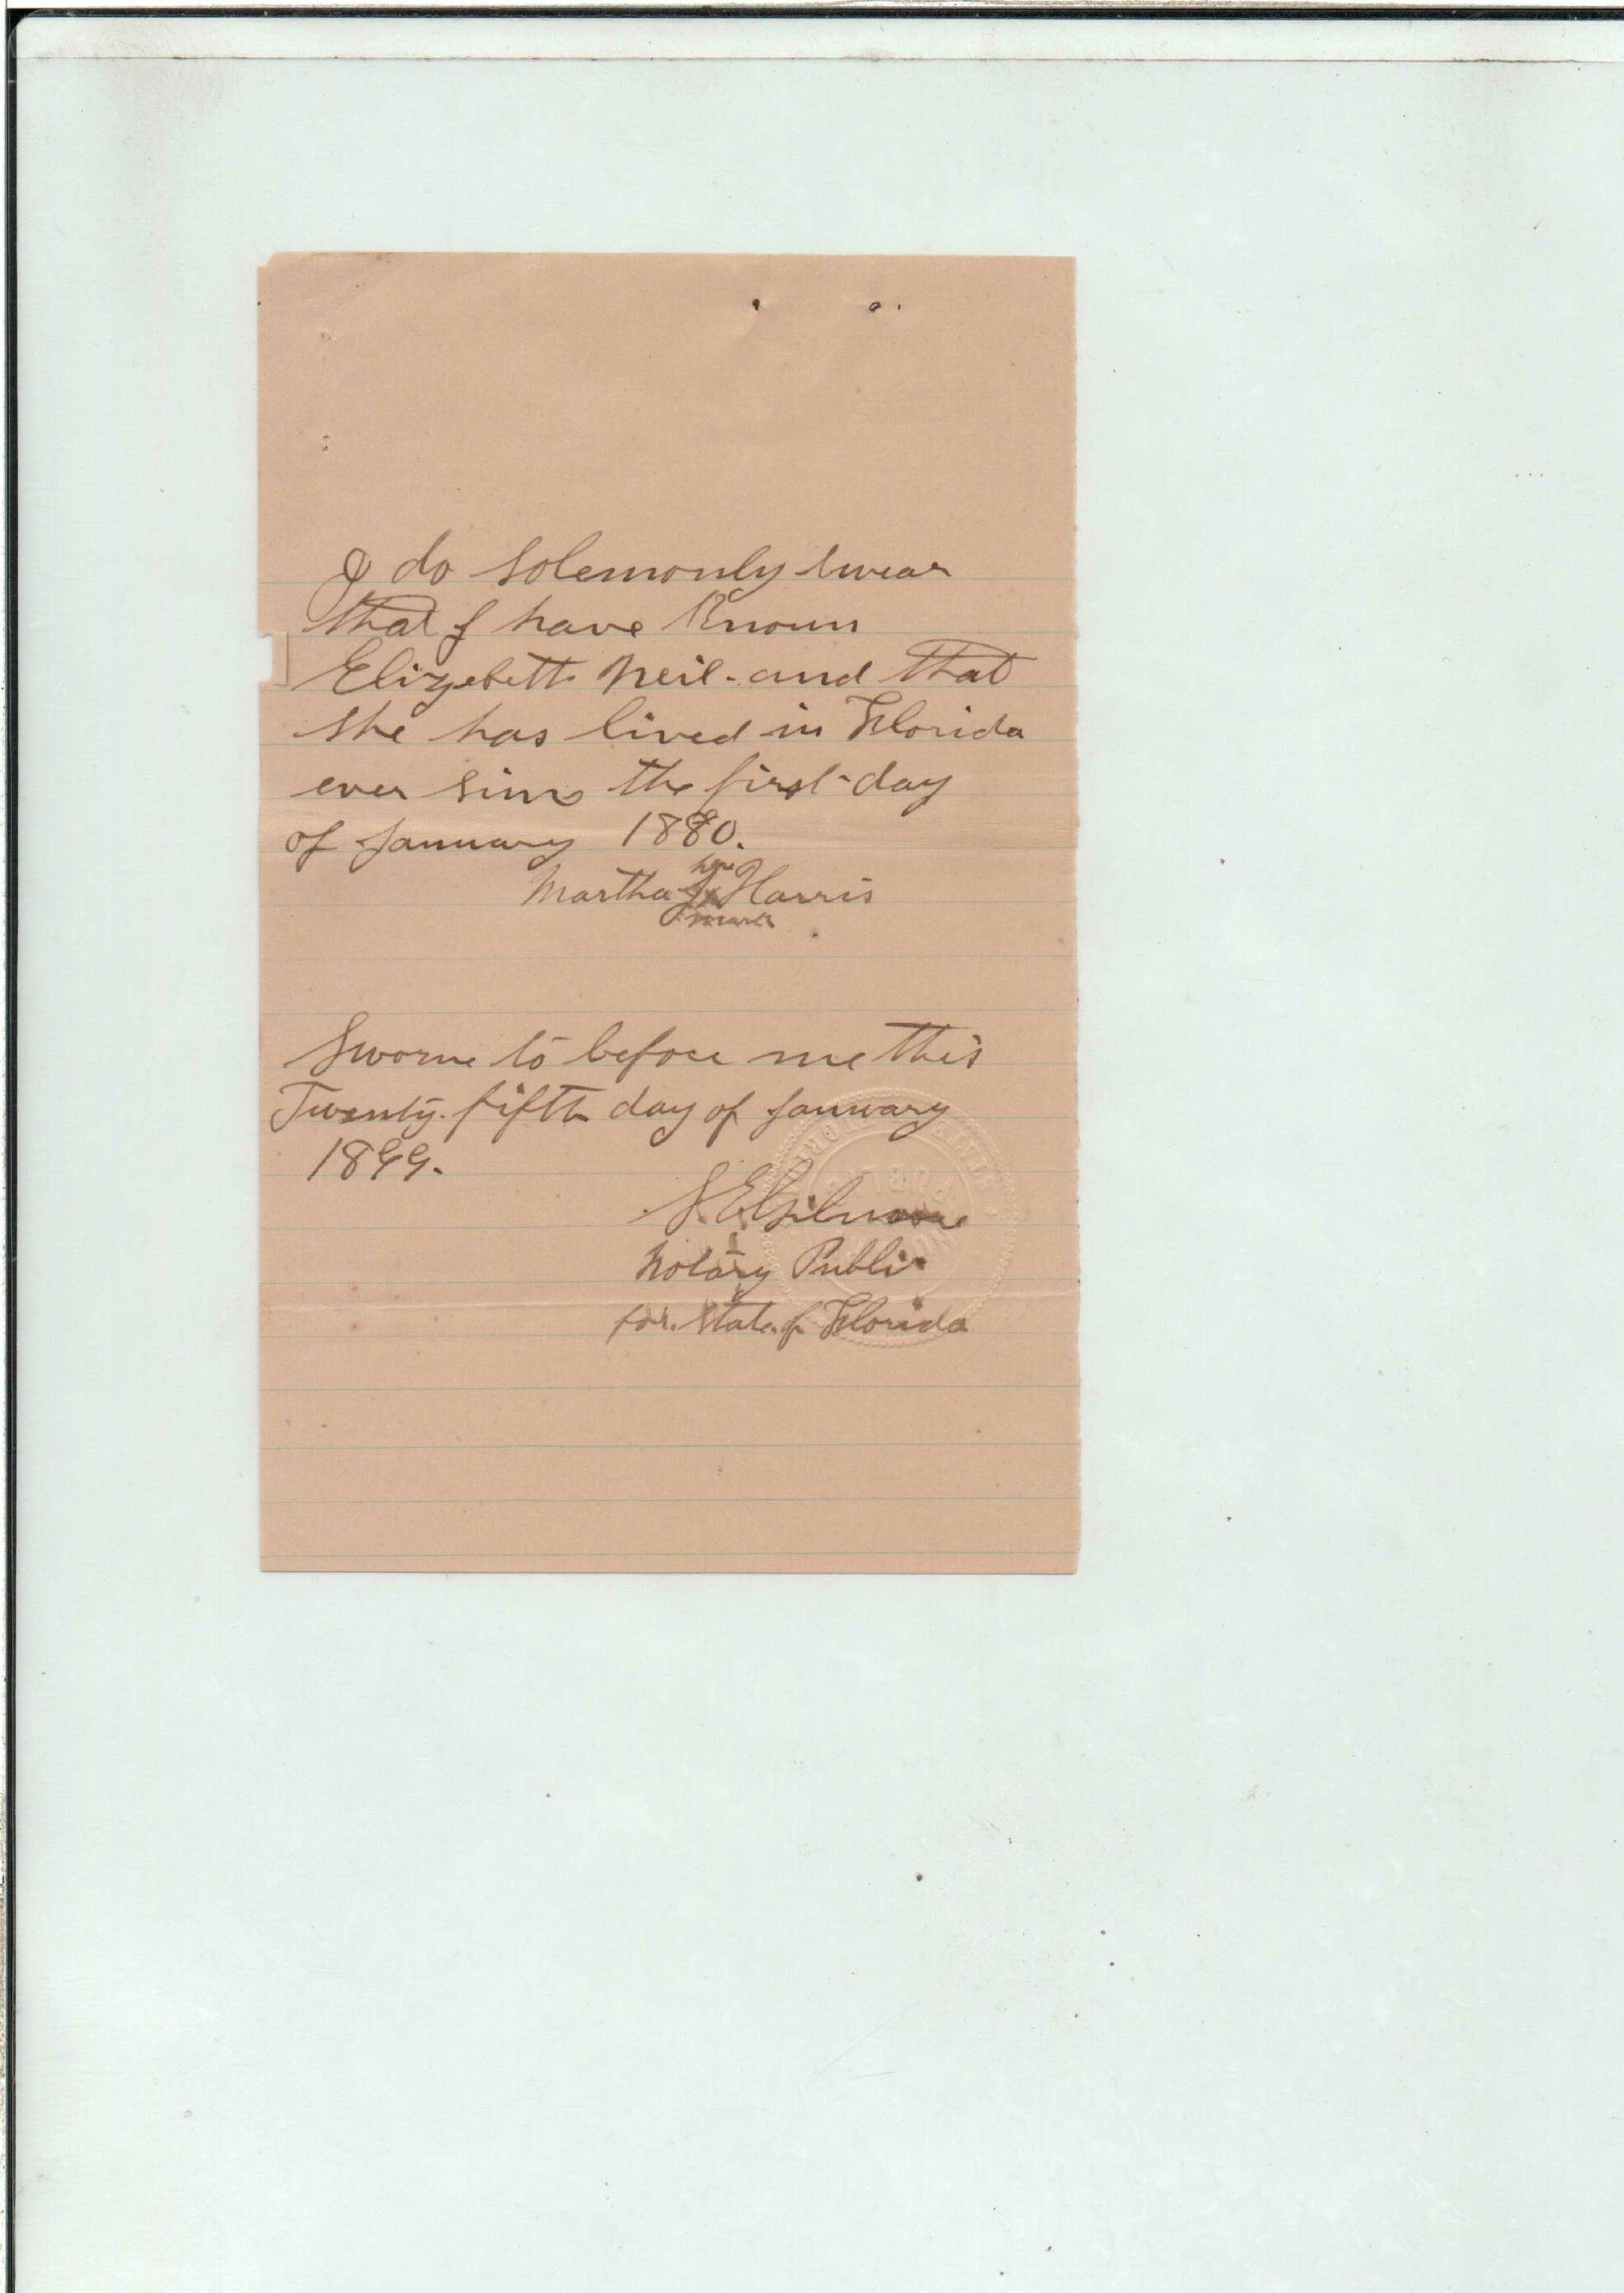 I do solemonly swear
that I have Known
Elizebeth Neil - and that
she has lived in Florida
ever since the first day
of January 1880.
her
Martha J x Harris
mark
Sworne to before me this
Twenty-fifth day of January
1899.
S. E. Gilmoore
Notary Public
for State of Florida